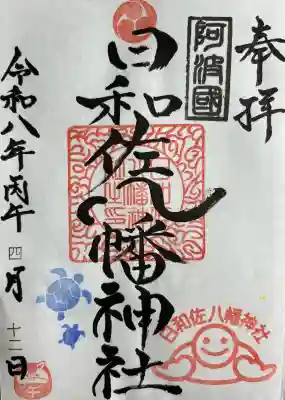 奉拝
阿波國
日和佐八幡神社
令和八年丙午四月十二日
日和佐八幡神社
午